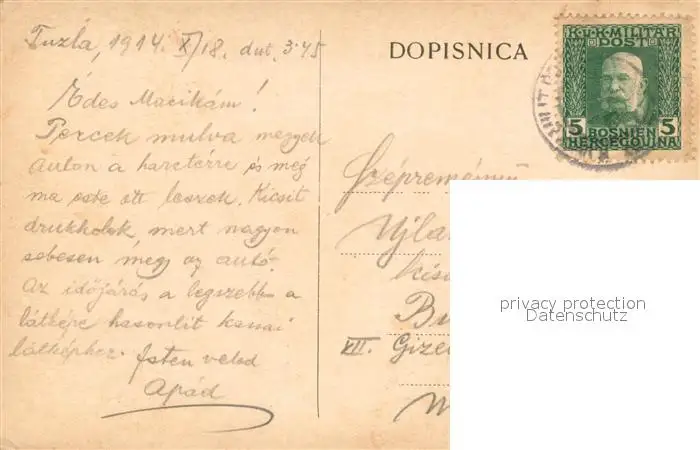 Tuzla, 1914. X/18. dut. 3.45
DOPISNICA
K.u.K. MILITÄR
POST
5 BOSNIEN 5
HERCEGOVINA
Édes Macikám!
Percek mulva megyek
auton a harctérre és még
ma este ott leszek. Kicsit
drukkolok mert nagyon
sebesen megy az autó.
Az időjárás a legszebb a
látképe hasonlít
látképhez. Isten veled
Apád
Szépreményű
Ujla
kisa
Bu
VII. Gize
privacy protection
Datenschutz